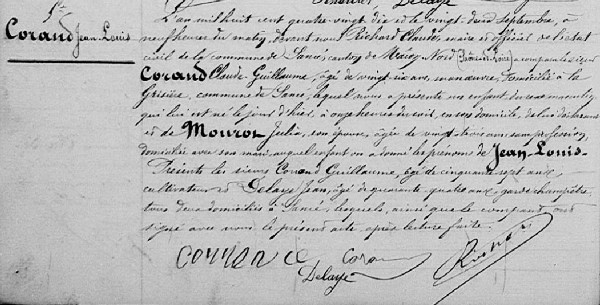 Delaye
5e
Corand Jean Louis
L'an mil huit cent quatre-vingt dix et le vingt deux Septembre, à
neuf heures du matin, devant nous Richard Claude, maire et officier de l'état
civil de la commune de Sancé, canton de Mâcon-Nord (Saône-et-Loire) a comparu le sieur
Corand Claude Guillaume, âgé de vingt six ans, manœuvre, domicilié à la
Grisière, commune de Sancé, lequel nous a présenté un enfant du sexe masculin
qui lui est né le jour d'hier, à onze heures du soir, en son domicile, de lui déclarant
et de Mouroz Julie, son épouse, âgée de vingt trois ans, sans profession,
domiciliée avec son mari, auquel enfant on a donné les prénoms de Jean Louis.
Présents les sieurs Corand Guillaume, âgé de cinquante sept ans
cultivateur et Delaye Jean, âgé de quarante quatre ans, garde champêtre,
tous deux domiciliés à Sancé, lesquels, ainsi que le comparant ont
signé avec nous le présent acte, après lecture faite.
Delaye